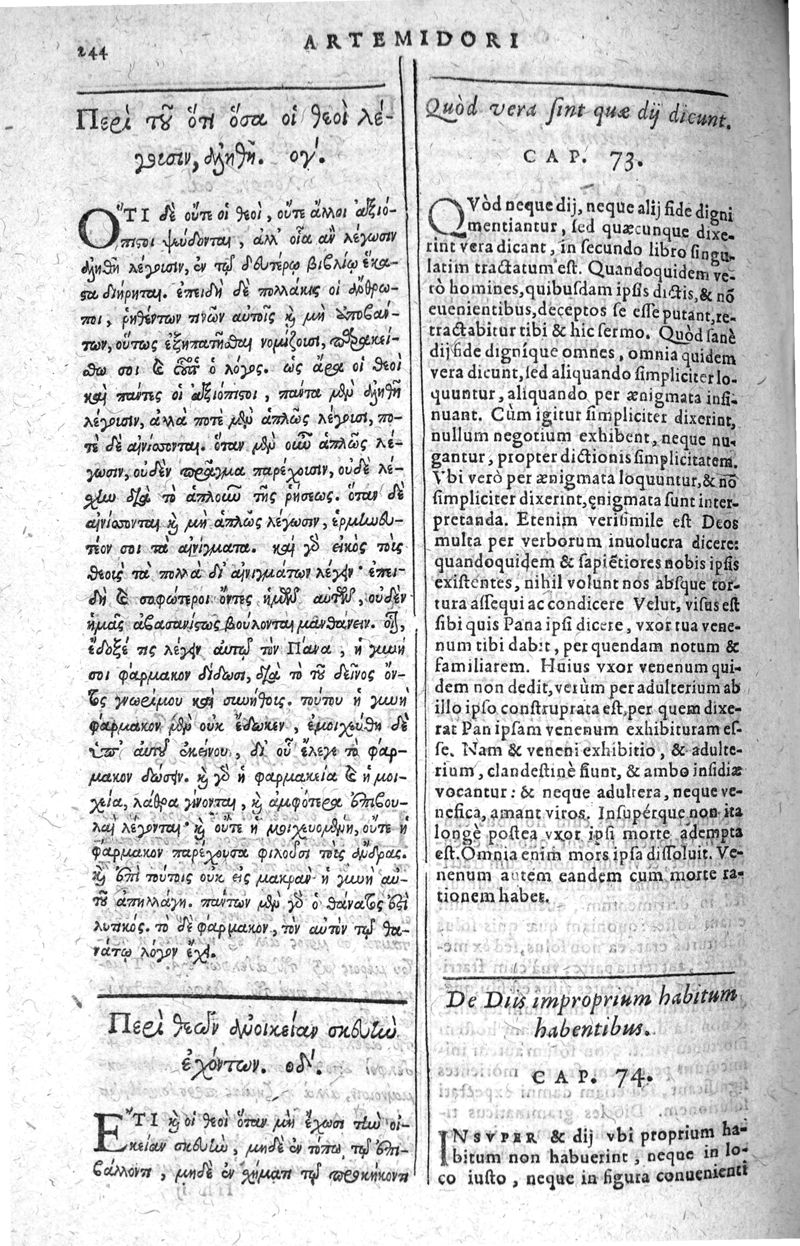 244
ARTEMIDORI
Περὶ τοῦ ὅτι ὅσα οἱ θεοὶ λέ-
γουσιν, ἀληθῆ. ογ´.
ΟΤΙ δὲ οὔτε οἱ θεοὶ, οὔτε ἄλλοι ἀξιό-
πιστοι ψεύδονται, ἀλλ' οἷα ἂν λέγωσιν
ἀληθῆ λέγουσιν, ἐν τῷ δευτέρῳ βιβλίῳ ἕκα-
στα διῄρηται. ἐπειδὴ δὲ πολλάκις οἱ ἄνθρω-
ποι, ῥηθέντων τινῶν αὐτοῖς καὶ μὴ ἀποβάν-
των, οὕτως ἐξηπατῆσθαι νομίζουσι, προσκεί-
σθω σοι καὶ ὁ λόγος. ὡς ἄρα οἱ θεοὶ
καὶ πάντες οἱ ἀξιόπιστοι, πάντα μὲν ἀληθῆ
λέγουσιν, ἀλλὰ ποτὲ μὲν ἁπλῶς λέγουσι, πο-
τὲ δὲ αἰνίσσονται. ὅταν μὲν οὖν ἁπλῶς λέ-
γωσιν, οὐδὲν πρᾶγμα παρέχουσιν, οὐδὲ λέ-
σχην διὰ τὸ ἁπλοῦν τῆς ῥήσεως. ὅταν δὲ
αἰνίσσονται καὶ μὴ ἁπλῶς λέγωσιν, ἑρμηνευ-
τέον σοι τὰ αἰνίγματα. καὶ γὰρ εἰκὸς τοὺς
θεοὺς τὰ πολλὰ δι' αἰνιγμάτων λέγειν· ἐπει-
δὴ καὶ σοφώτεροι ὄντες ἡμῶν αὐτῶν, οὐδὲν
ἡμᾶς ἀβασανίστως βούλονται μανθάνειν. οἷον,
ἔδοξέ τις λέγειν αὐτῷ τὸν Πᾶνα, ἡ γυνή
σοι φάρμακον δίδωσι, διὰ τὸ τοῦ δεῖνος ὄν-
τος γνωρίμου καὶ συνήθους. τούτου ἡ γυνὴ
φάρμακον μὲν οὐκ ἔδωκεν, ἐμοιχεύθη δὲ
ὑπ' αὐτοῦ ἐκείνου, δι' οὗ ἔλεγε τὸ φάρ-
μακον δώσειν. καὶ γὰρ ἡ φαρμακεία καὶ ἡ μοι-
χεία, λάθρα γίνονται, καὶ ἀμφότεραι ἐπιβου-
λαὶ λέγονται· καὶ οὔτε ἡ μοιχευομένη, οὔτε ἡ
φάρμακον παρέχουσα φιλοῦσι τοὺς ἄνδρας.
καὶ ἐπὶ τούτοις οὐκ εἰς μακρὰν ἡ γυνὴ αὐ-
τοῦ ἀπηλλάγη. πάντων μὲν γὰρ ὁ θάνατος ἐστὶ
λυτικός. τὸ δὲ φάρμακον, τὸν αὐτὸν τῷ θα-
νάτῳ λόγον ἔχει.
Περὶ θεῶν ἀνοικείαν σκευὴν
ἐχόντων. οδ´.
ΕΤΙ καὶ οἱ θεοὶ ὅταν μὴ ἔχωσι τὴν οἰ-
κείαν σκευὴν, μηδὲ ἐν τόπῳ τῷ ἐπι-
βάλλοντι, μηδὲ ἐν σχήματι τῷ προσήκοντι
Quòd vera sint quæ dij dicunt.
CAP. 73.
QVòd neque dij, neque alij fide digni
mentiantur, sed quæcunque dixe-
rint vera dicant, in secundo libro singu-
latim tractatum est. Quandoquidem ve-
rò homines, quibusdam ipsis dictis, & nõ
euenientibus, deceptos se esse putant, re-
tractabitur tibi & hic sermo. Quòd sanè
dij fide digníque omnes, omnia quidem
vera dicunt, sed aliquando simpliciter lo-
quuntur, aliquando per ænigmata insi-
nuant. Cùm igitur simpliciter dixerint,
nullum negotium exhibent, neque nu-
gantur, propter dictionis simplicitatem.
Vbi verò per ænigmata loquuntur, & nõ
simpliciter dixerint, ęnigmata sunt inter-
pretanda. Etenim verisimile est Deos
multa per verborum inuolucra dicere:
quandoquidem & sapiẽtiores nobis ipsis
existentes, nihil volunt nos absque tor-
tura assequi ac condicere Velut, visus est
sibi quis Pana ipsi dicere, vxor tua vene-
num tibi dabit, per quendam notum &
familiarem. Huius vxor venenum qui-
dem non dedit, verùm per adulterium ab
illo ipso construprata est, per quem dixe-
rat Pan ipsam venenum exhibituram es-
se. Nam & veneni exhibitio, & adulte-
rium, clandestinè fiunt, & ambo insidiæ
vocantur: & neque adultera, neque ve-
nefica, amant viros. Insupérque non ita
longè postea vxor ipsi morte adempta
est. Omnia enim mors ipsa dissoluit. Ve-
nenum autem eandem cum morte ra-
tionem habet.
De Diis improprium habitum
habentibus.
CAP. 74.
INSVPER & dij vbi proprium ha-
bitum non habuerint, neque in lo-
co iusto, neque in figura conuenienti